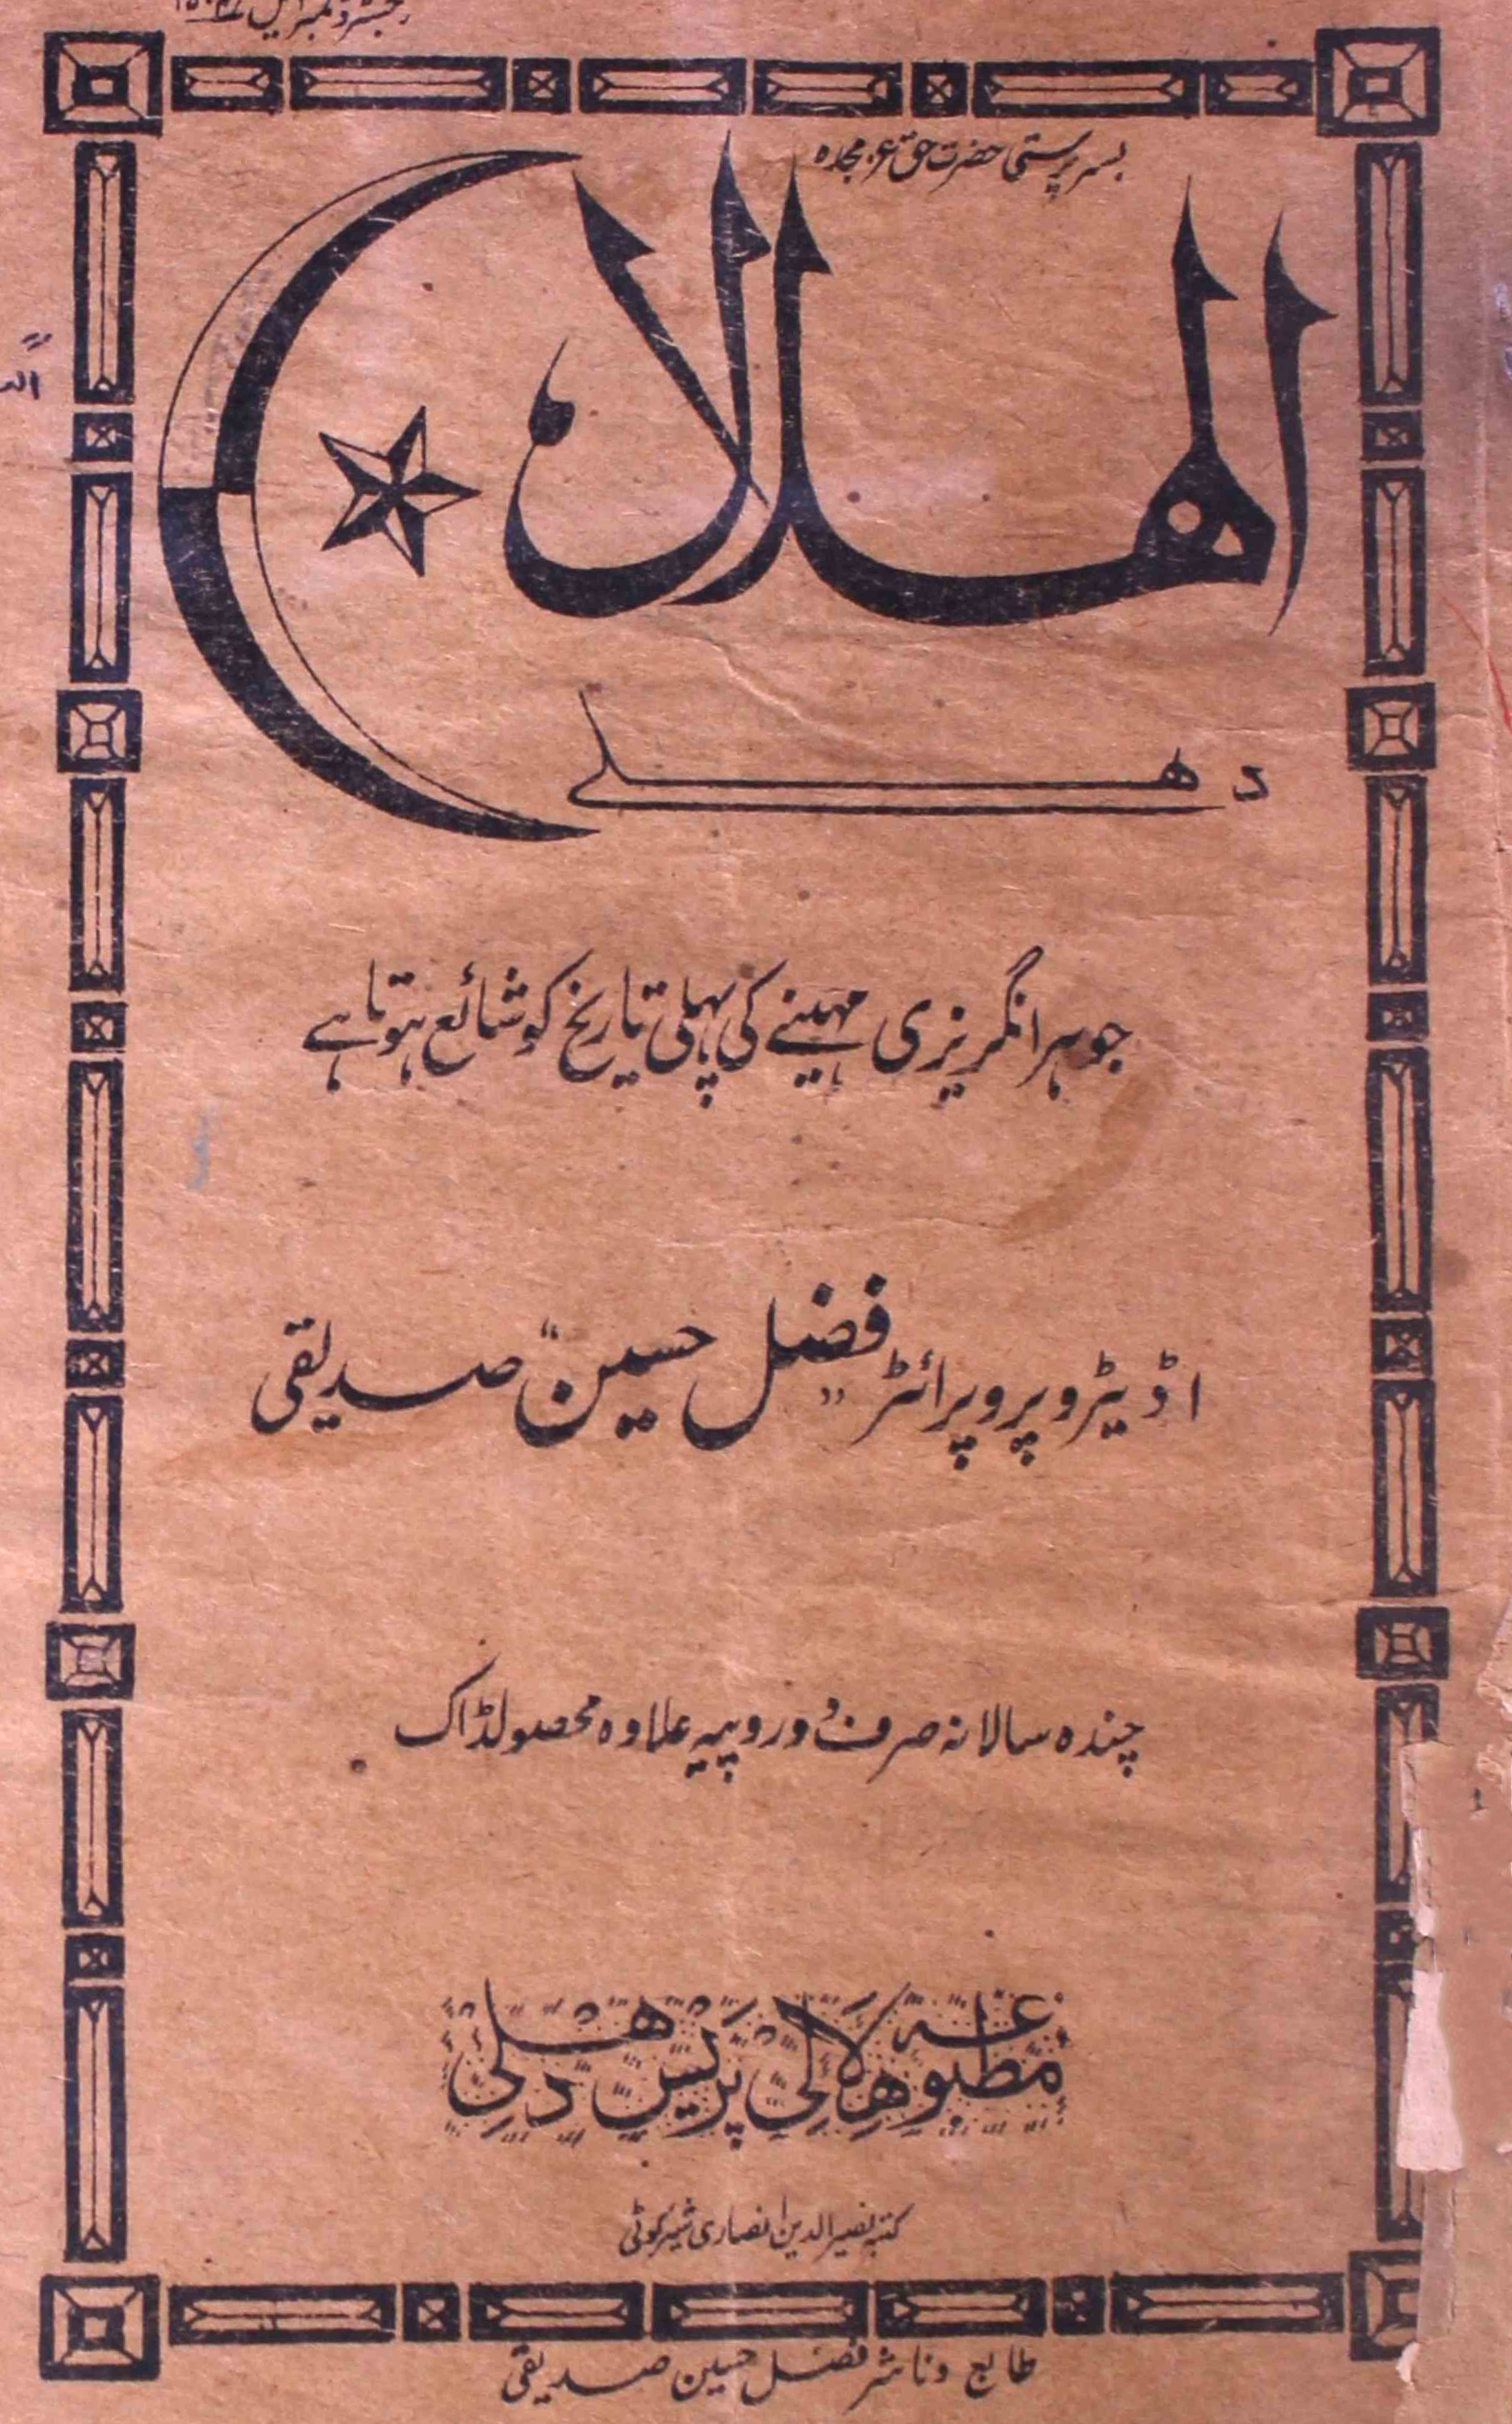 رجسٹرڈ نمبر ایل
بسرپرستی حضرت حق عز مجدہ
الهلال
دهلی
جو ہر انگریزی مہینے کی پہلی تاریخ کو شائع ہوتا ہے
اڈیٹر و پروپرائٹر "فضل حسین" صدیقی
چندہ سالانہ صرف دو روپیہ علاوہ محصولڈاک
مطبوعہ هلالی پریس دهلی
کتبہ نصیر الدین انصاری شیرکوٹی
طابع و ناشر فضل حسین صدیقی